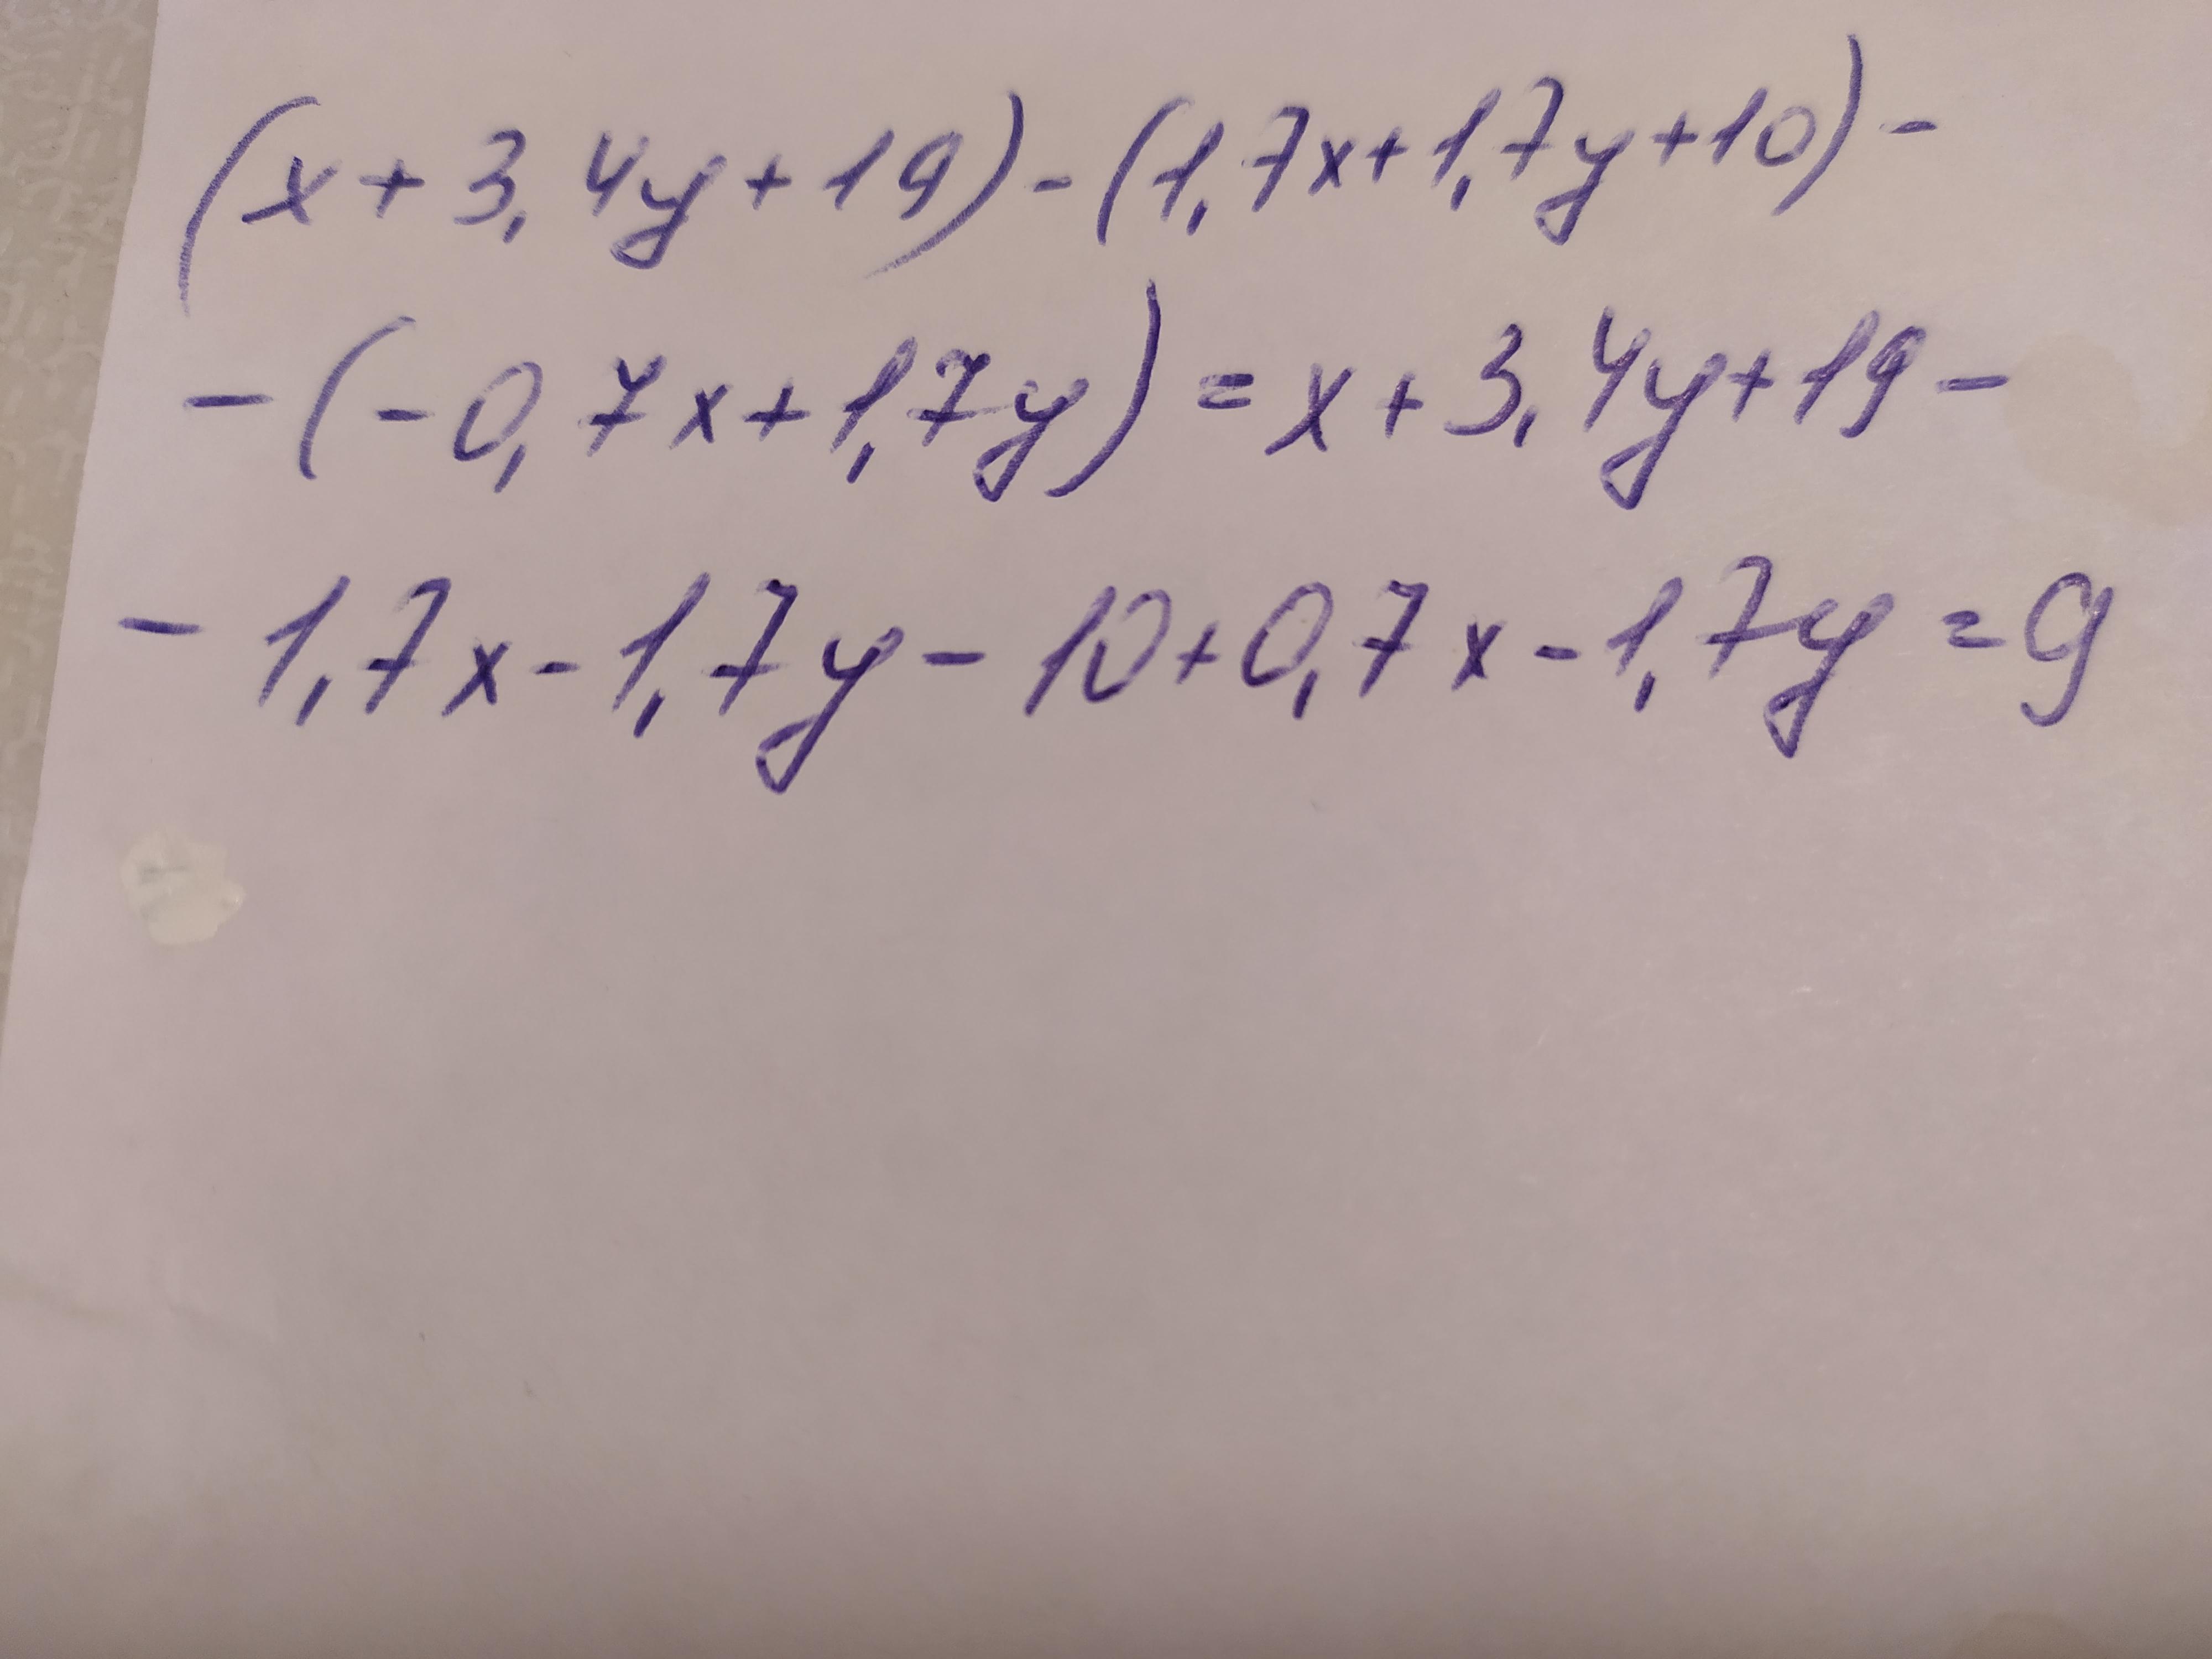 (x+3,4y+19)-(1,7x+1,7y+10)-
-(-0,7x+1,7y)=x+3,4y+19-
-1,7x-1,7y-10+0,7x-1,7y=9